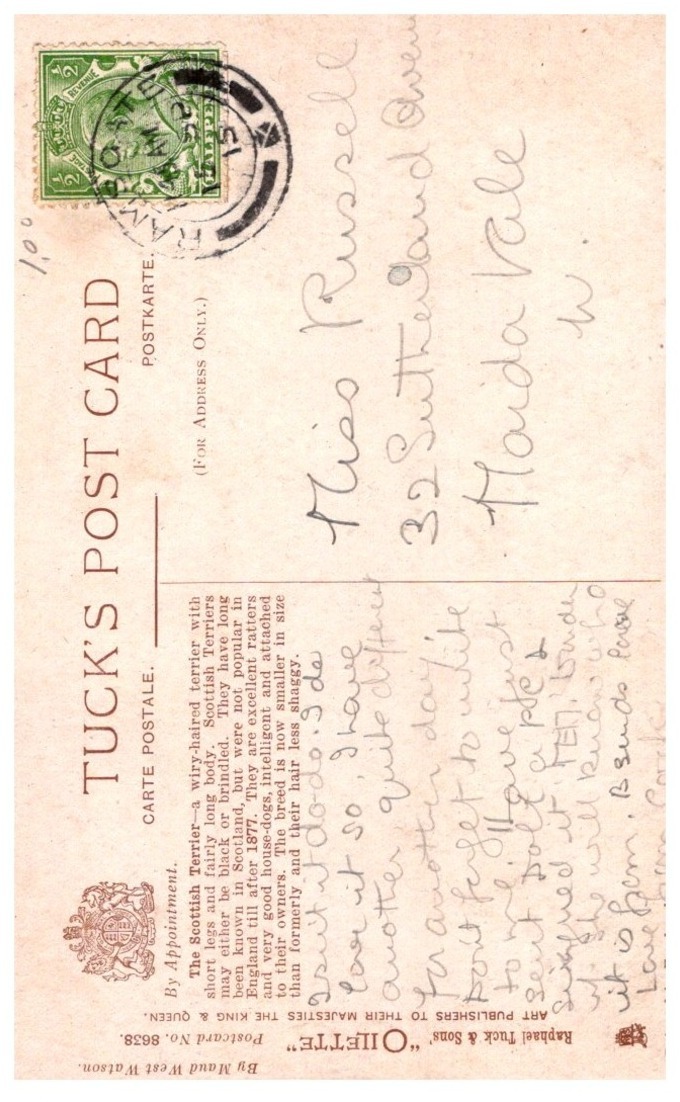 By Appointment.
TUCK'S POST CARD
CARTE POSTALE.
POSTKARTE.
(FOR ADDRESS ONLY.)
The Scottish Terrier—a wiry-haired terrier with
short legs and fairly long body. Scottish Terriers
may either be black or brindled. They have long
been known in Scotland, but were not popular in
England till after 1877. They are excellent ratters
and very good house-dogs, intelligent and attached
to their owners. The breed is now smaller in size
than formerly and their hair less shaggy.
Isn't it do-do. I do
love it so. I have
another quite different
for another day
Don't forget to write
to me. Have just
sent a pc &
signed it
if she will know who
it is from. B sends love
Love from
Miss Russell
32 Sutherland Avenue
Maida Vale
W.
½ REVENUE ½
HALFPENNY
15
1/0
By Maud West Watson.
Raphael Tuck & Sons' "OILETTE" Postcard No. 8638.
ART PUBLISHERS TO THEIR MAJESTIES THE KING & QUEEN.